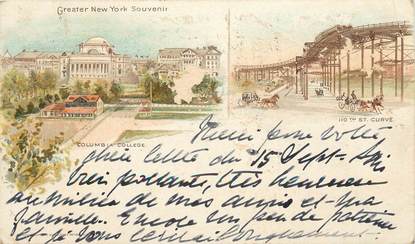 Greater New York Souvenir
COLUMBIA COLLEGE
110TH ST. CURVE.
Merci pour votre
chère lettre du 15 Sept. Suis
très portante, très heureuse
au milieu de mes amis et ma
famille. Encore un peu de patience
et je vous écrirai longuement.